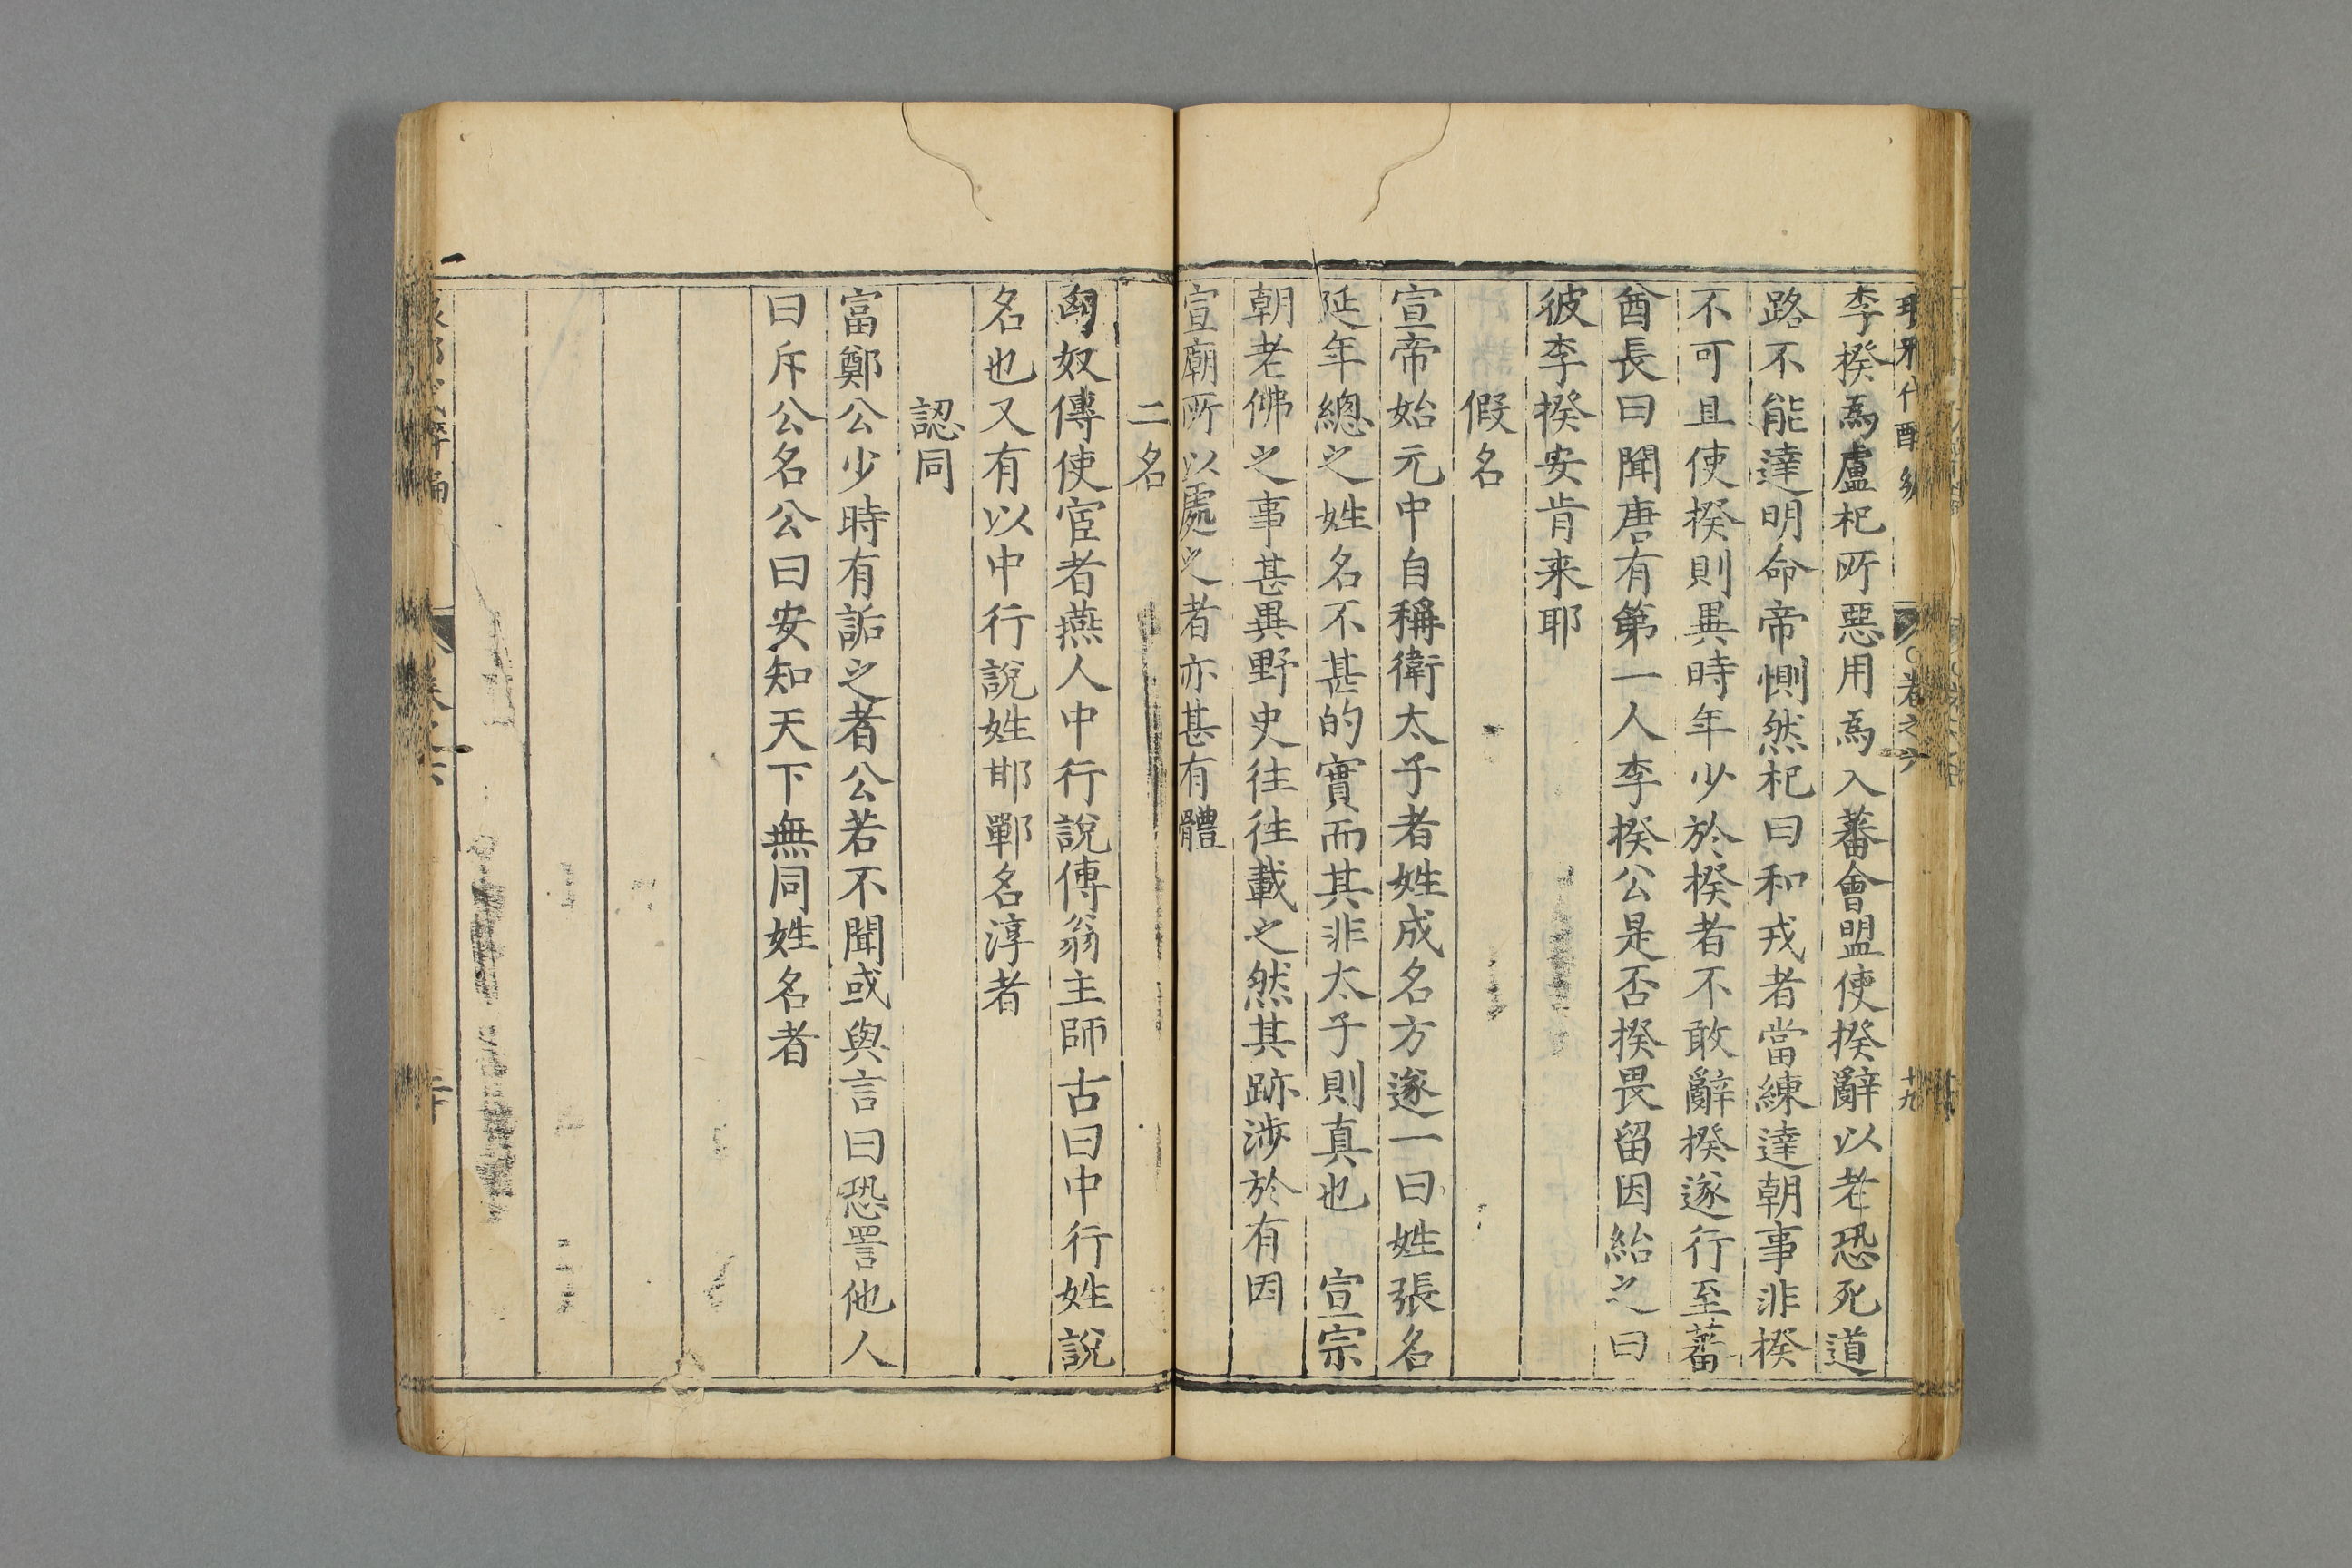 李揆為盧杞所惡用為入蕃會盟使揆辭以老恐死道
路不能達明命帝惻然杞曰和戎者當練達朝事非揆
不可且使揆則異時年少於揆者不敢辭揆遂行至蕃
酋長曰聞唐有第一人李揆公是否揆畏留因紿之曰
彼李揆安肯来耶
假名
宣帝始元中自稱衛太子者姓成名方遂一曰姓張名
延年總之姓名不甚的實而其非太子則真也 宣宗
朝老佛之事甚異野史往往載之然其跡涉於有因
宣廟所以處之者亦甚有體
二名
匈奴傳使宦者燕人中行說傅翁主師古曰中行姓說
名也又有以中行說姓邯鄲名淳者
認同
富鄭公少時有詬之者公若不聞或與言曰恐詈他人
曰斥公名公曰安知天下無同姓名者
卷之六
十九